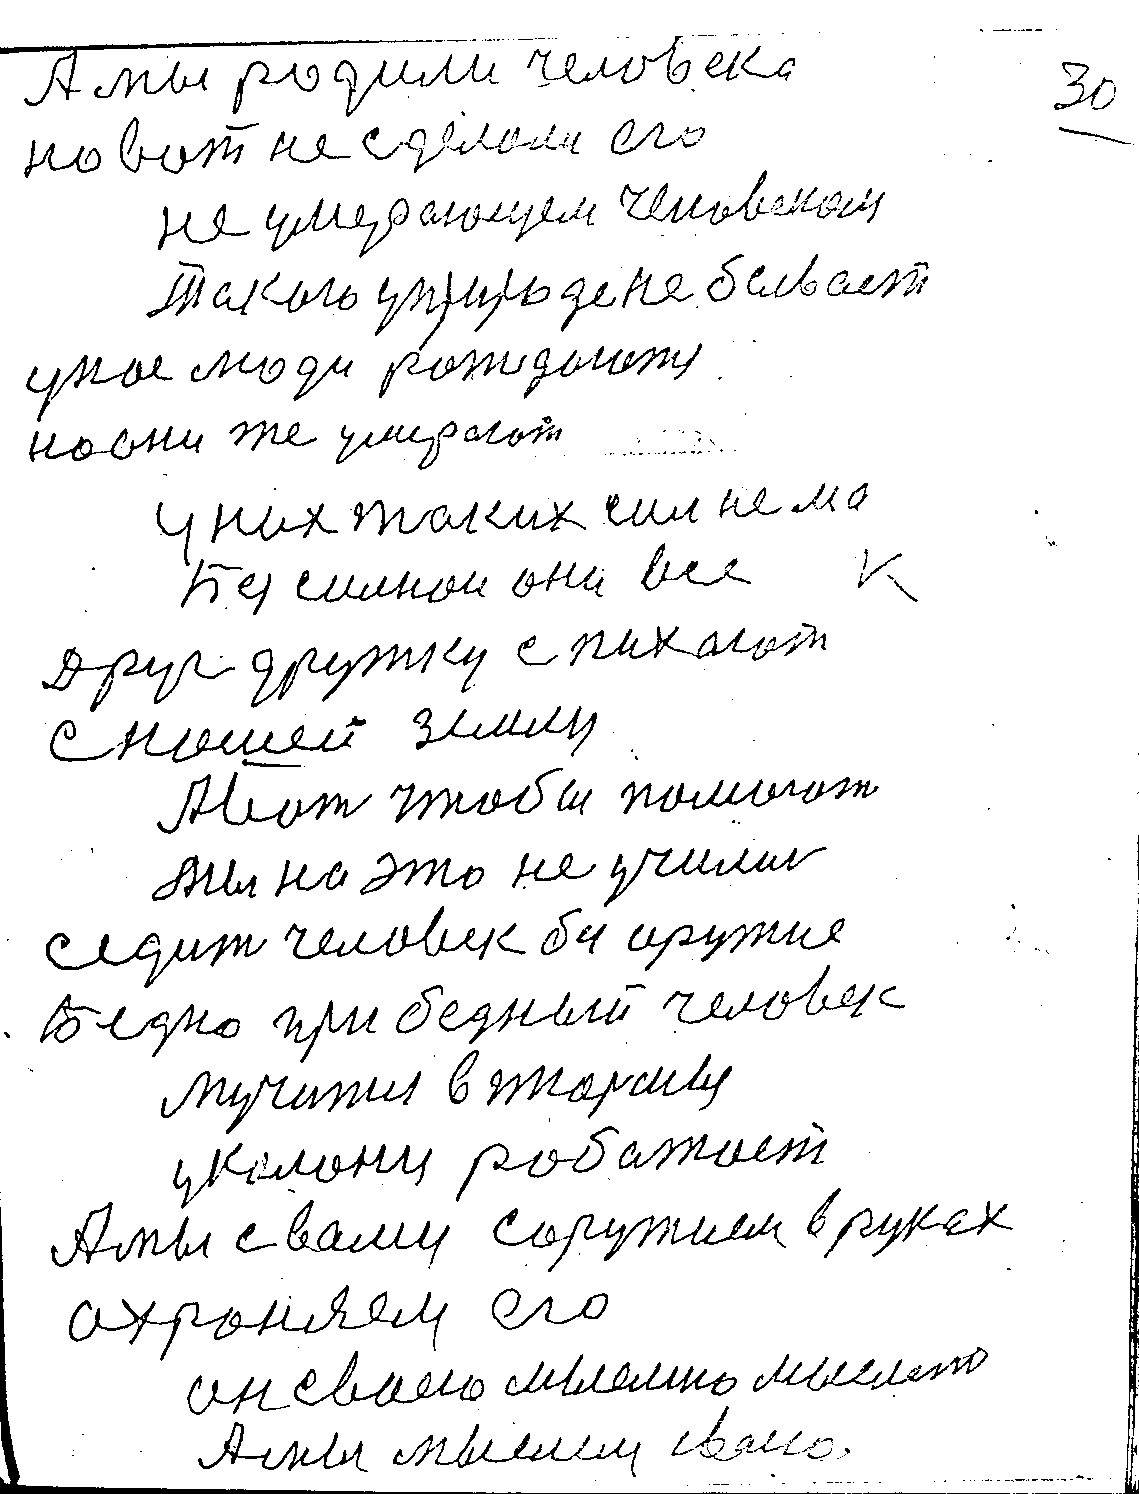 30
А мы родили человека
но вот не сделали его
не умерающем человеком
Такого у природе не бывает
у нас люди рождаются
но они же умирают
У них таких сил не ма
они все К
Друг дружку спихают
с нашей земли
А вот чтобы помогат
Мы на это не училис
Седит человек бя оружие
Бедно при бедный человек
мучится в тюрмы
у колони работает
А мы с вами с оружием в руках
охроняем его
он сваею мыслию мыслит
А мы мыслим сваею